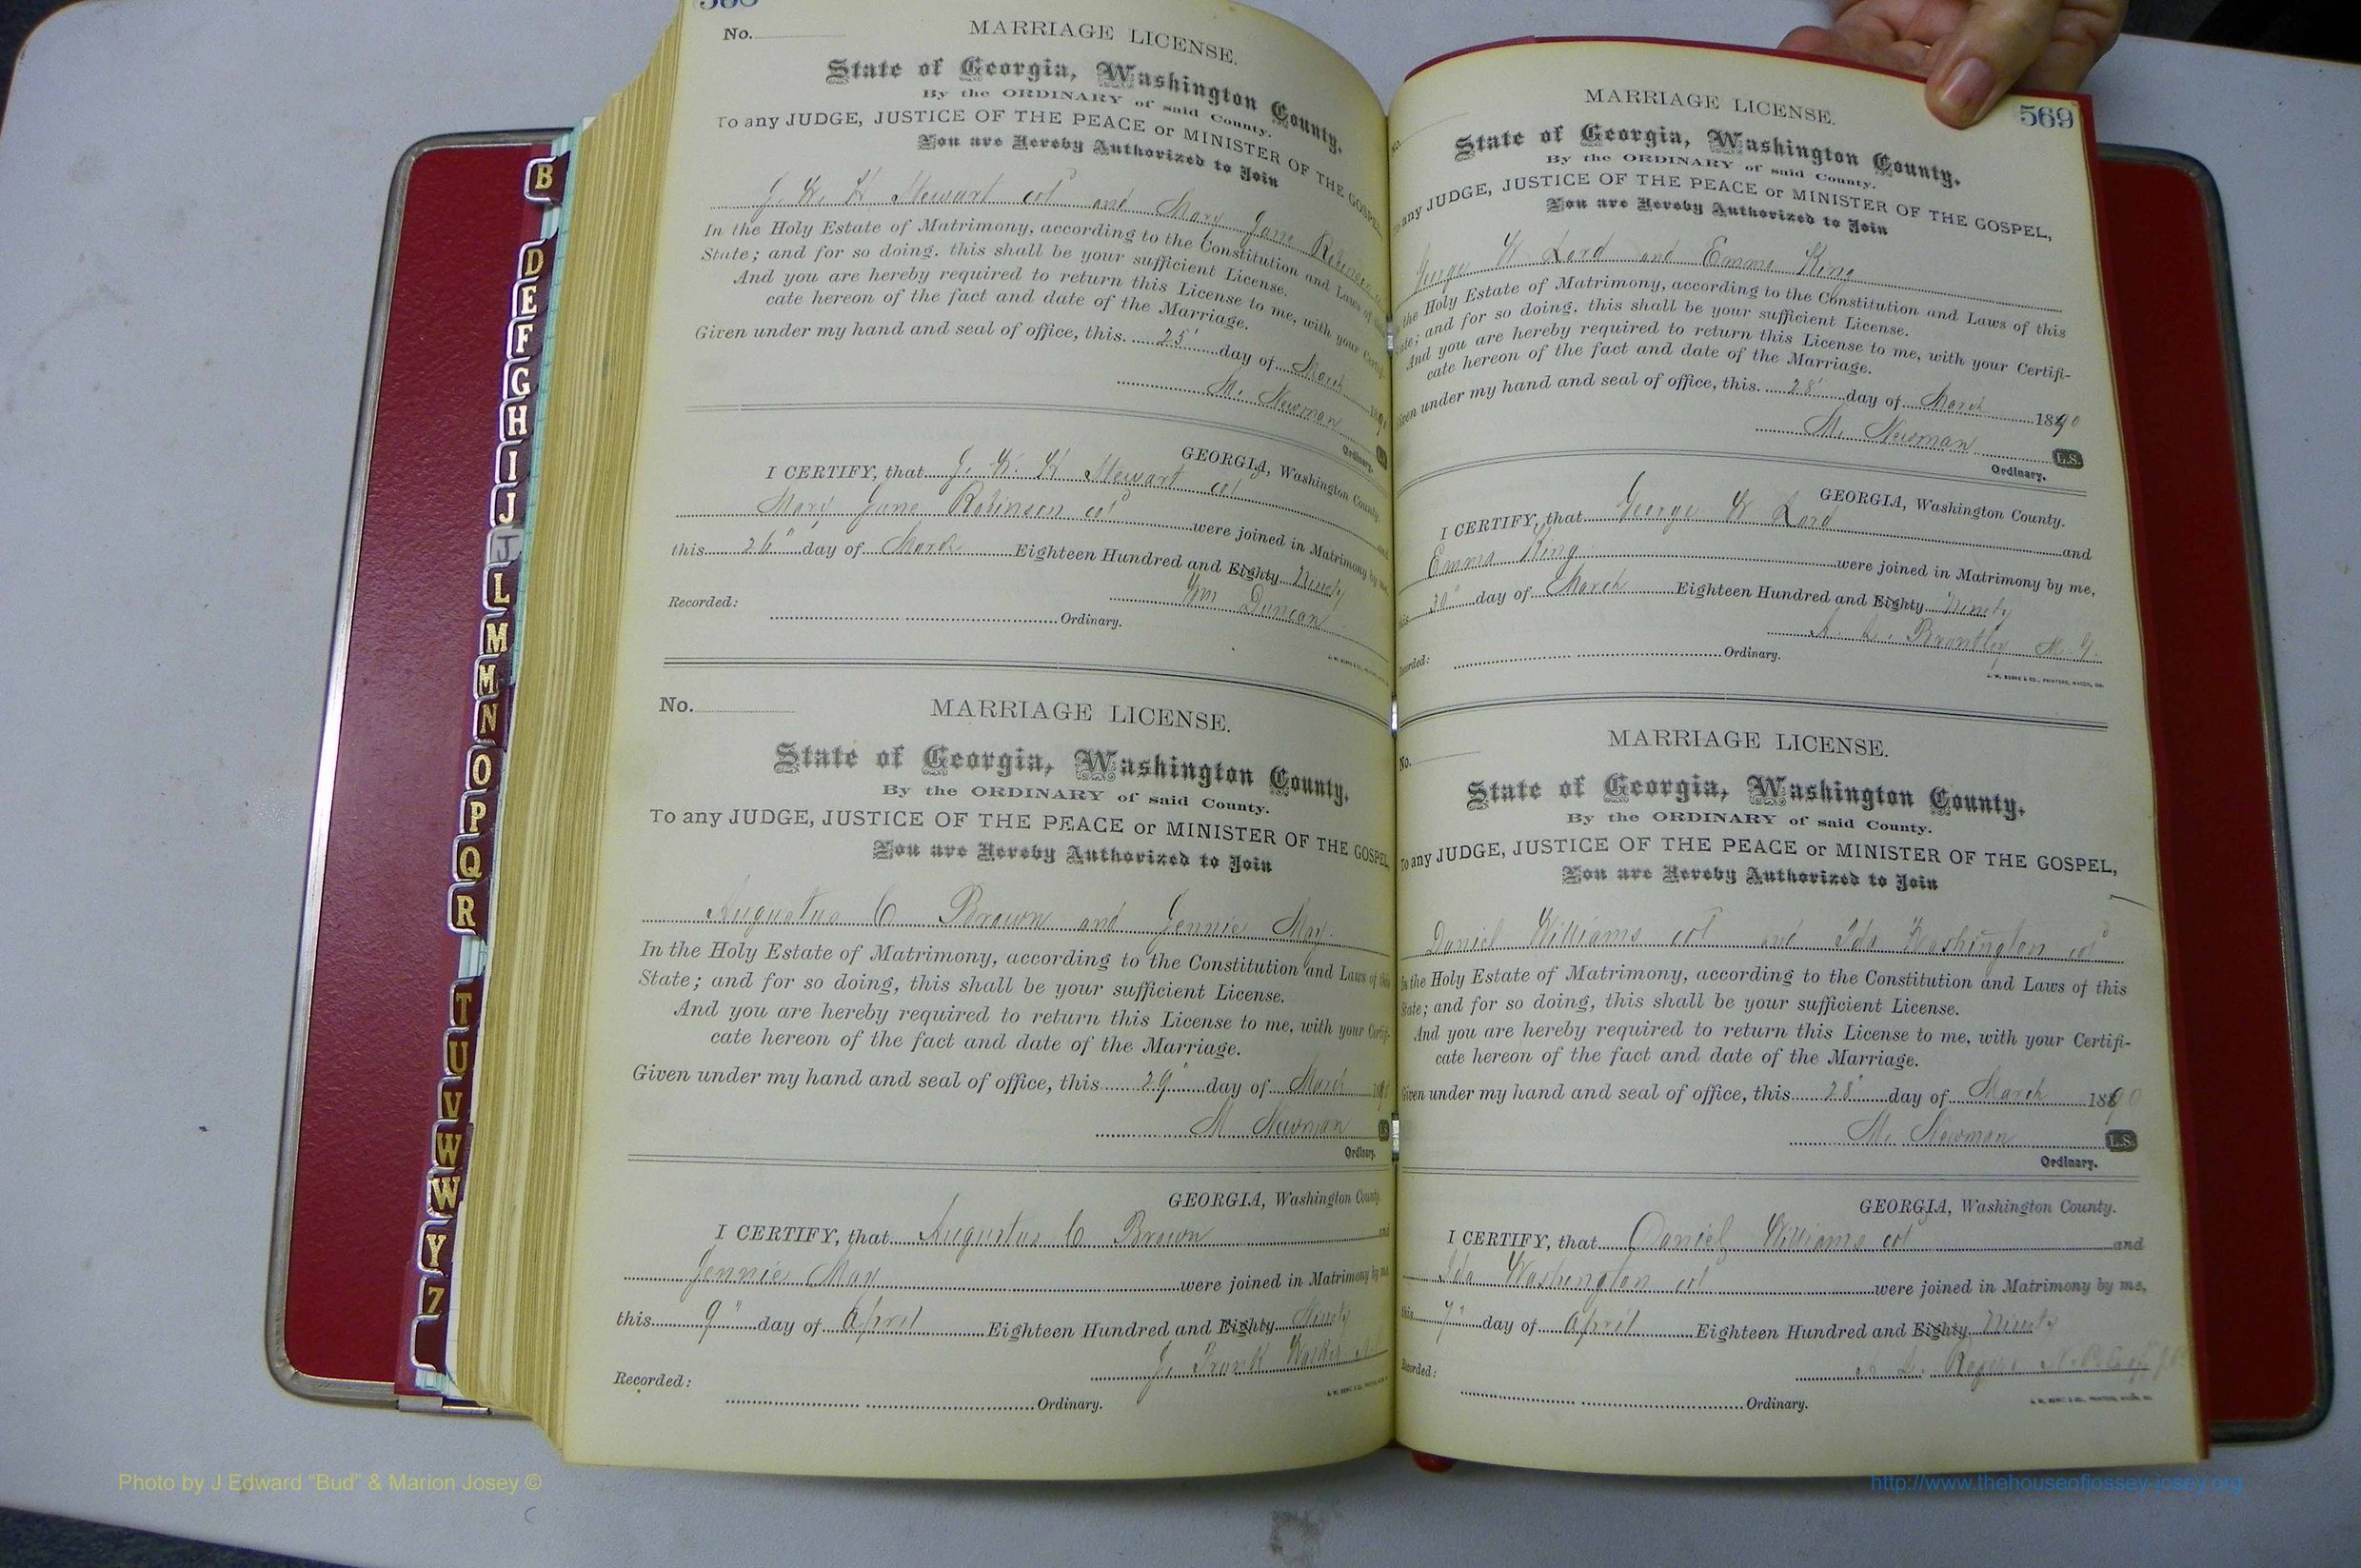 568
No.
MARRIAGE LICENSE.
State of Georgia, Washington County.
By the ORDINARY of said County.
To any JUDGE, JUSTICE OF THE PEACE or MINISTER OF THE GOSPEL,
You are Hereby Authorized to Join
J. W. H Stewart col and Mary Jane Robinson
In the Holy Estate of Matrimony, according to the Constitution and Laws of this
State; and for so doing, this shall be your sufficient License.
And you are hereby required to return this License to me, with your Certifi-
cate hereon of the fact and date of the Marriage.
Given under my hand and seal of office, this 25" day of March 1890
M. Newman
Ordinary.
GEORGIA, Washington County.
I CERTIFY, that J. W. H Stewart col and
Mary Jane Robinson col were joined in Matrimony by me,
this 26" day of March Eighteen Hundred and Eighty Ninety
Wm Duncan
Recorded:
Ordinary.
No.
MARRIAGE LICENSE.
State of Georgia, Washington County.
By the ORDINARY of said County.
To any JUDGE, JUSTICE OF THE PEACE or MINISTER OF THE GOSPEL,
You are Hereby Authorized to Join
Augustus C Brown and Jennie May
In the Holy Estate of Matrimony, according to the Constitution and Laws of this
State; and for so doing, this shall be your sufficient License.
And you are hereby required to return this License to me, with your Certifi-
cate hereon of the fact and date of the Marriage.
Given under my hand and seal of office, this 29" day of March 1890
M Newman LS
Ordinary.
GEORGIA, Washington County.
I CERTIFY, that Augustus C Brown and
Jennie May were joined in Matrimony by me
this 9" day of April Eighteen Hundred and Eighty Ninety
J. Frank Walker
Recorded:
Ordinary.
569
No.
MARRIAGE LICENSE.
State of Georgia, Washington County.
By the ORDINARY of said County.
To any JUDGE, JUSTICE OF THE PEACE or MINISTER OF THE GOSPEL,
You are Hereby Authorized to Join
George W Lord and Emma King
the Holy Estate of Matrimony, according to the Constitution and Laws of this
State; and for so doing, this shall be your sufficient License.
And you are hereby required to return this License to me, with your Certifi-
cate hereon of the fact and date of the Marriage.
Given under my hand and seal of office, this 28" day of March 1890
M. Newman L.S.
Ordinary.
GEORGIA, Washington County.
I CERTIFY, that George W Lord and
Emma King were joined in Matrimony by me,
this 30" day of March Eighteen Hundred and Eighty Ninety
Brantley M. G.
Recorded:
Ordinary.
J. W. BURKE & CO., PRINTERS, MACON, GA.
No.
MARRIAGE LICENSE.
State of Georgia, Washington County.
By the ORDINARY of said County.
To any JUDGE, JUSTICE OF THE PEACE or MINISTER OF THE GOSPEL,
You are Hereby Authorized to Join
Daniel Williams col and Ida Washington col
In the Holy Estate of Matrimony, according to the Constitution and Laws of this
State; and for so doing, this shall be your sufficient License.
And you are hereby required to return this License to me, with your Certifi-
cate hereon of the fact and date of the Marriage.
Given under my hand and seal of office, this 28" day of March 1890
M. Newman L.S.
Ordinary.
GEORGIA, Washington County.
I CERTIFY, that Daniel Williams col and
Ida Washington col were joined in Matrimony by me,
this 7" day of April Eighteen Hundred and Eighty Ninety
Recorded:
Ordinary.
B
D
E
F
G
H
I
J
J
L
M
M
N
O
P
Q
R
T
U
V
W
W
Y
Z
Photo by J Edward “Bud” & Marion Josey ©
http://www.thehouseofjossey-josey.org